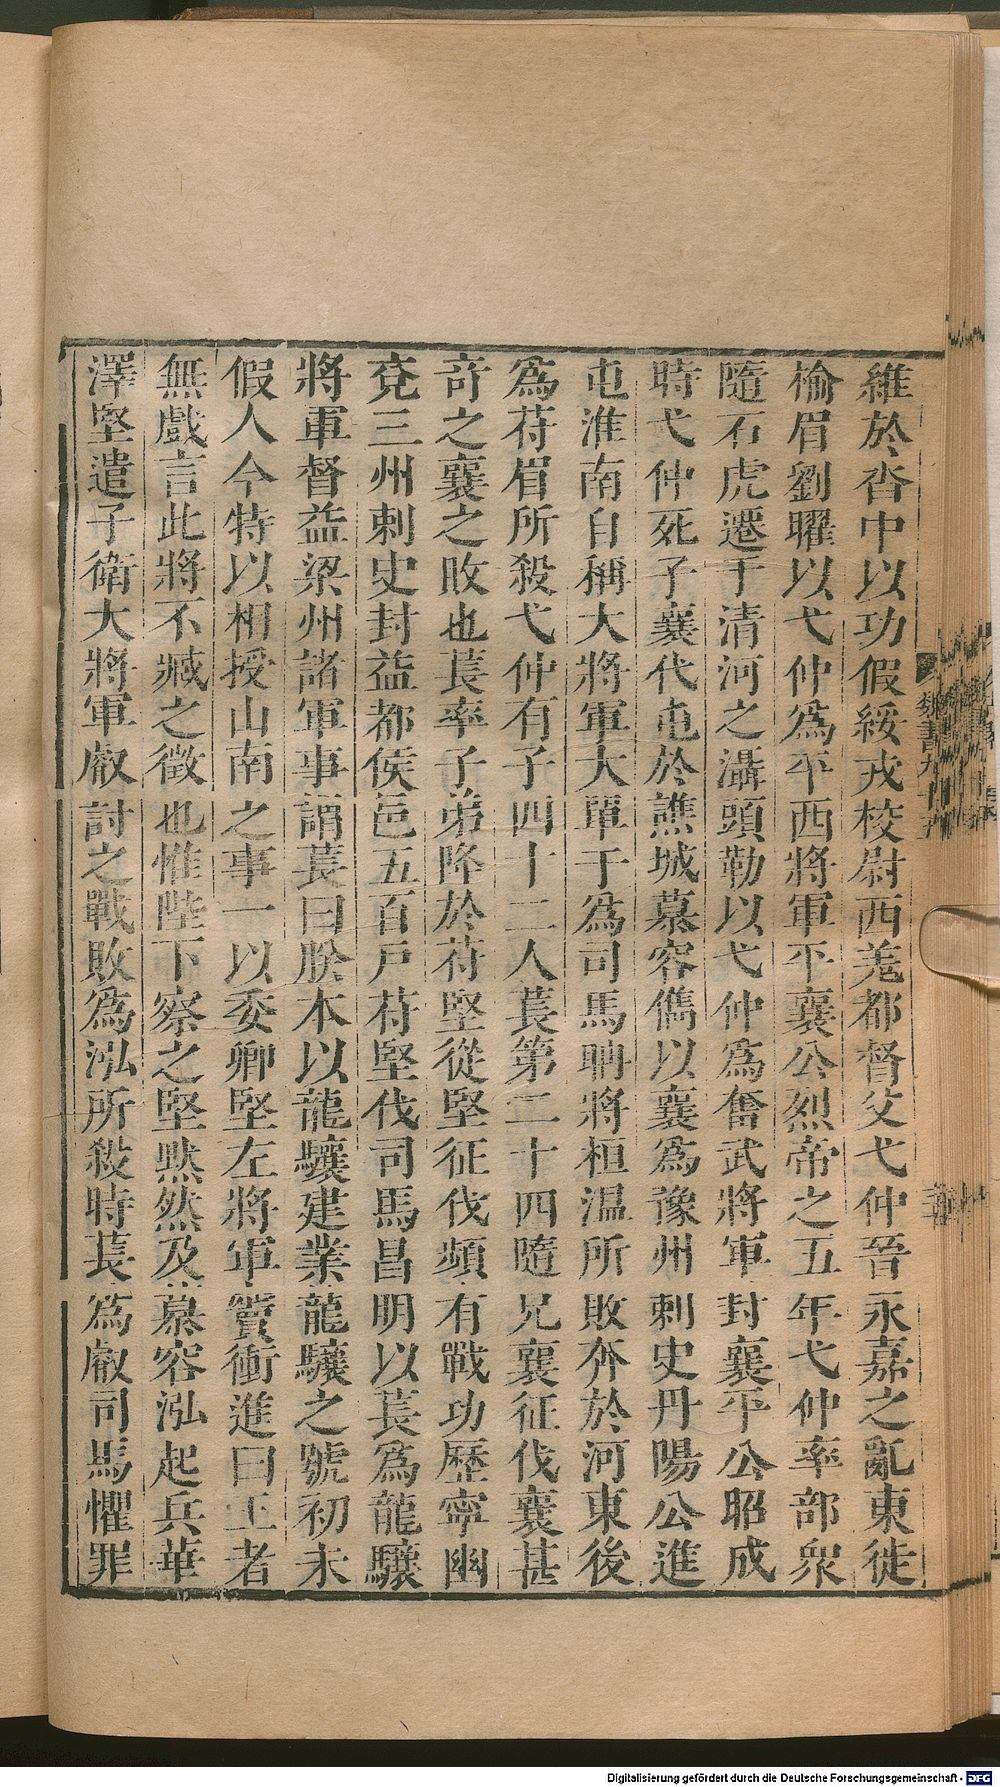 維於沓中以功假綏戎校尉西羗都督父弋仲晉永嘉之亂東徙
榆眉劉曜以弋仲爲平西將軍平襄公烈帝之五年弋仲率部衆
隨石虎遷于清河之灄頭勒以弋仲爲奮武將軍封襄平公昭成
時弋仲死子襄代屯於譙城慕容儁以襄爲豫州刺史丹陽公進
屯淮南自稱大將軍大單于爲司馬聃將桓温所敗奔於河東後
爲苻眉所殺弋仲有子四十二人萇第二十四隨兄襄征伐襄甚
竒之襄之敗也萇率子弟降於苻堅從堅征伐頻有戰功歷寧幽
兗三州刺史封益都侯邑五百戸苻堅伐司馬昌明以萇爲龍驤
將軍督益梁州諸軍事謂萇曰朕本以龍驤建業龍驤之號初未
假人今特以相授山南之事一以委卿堅左將軍竇衝進曰王者
無戲言此將不臧之徵也惟陛下察之堅黙然及慕容泓起兵華
澤堅遣子衛大將軍叡討之戰敗爲泓所殺時萇爲叡司馬懼罪
魏書九十五
Digitalisierung gefördert durch die Deutsche Forschungsgemeinschaft - DFG